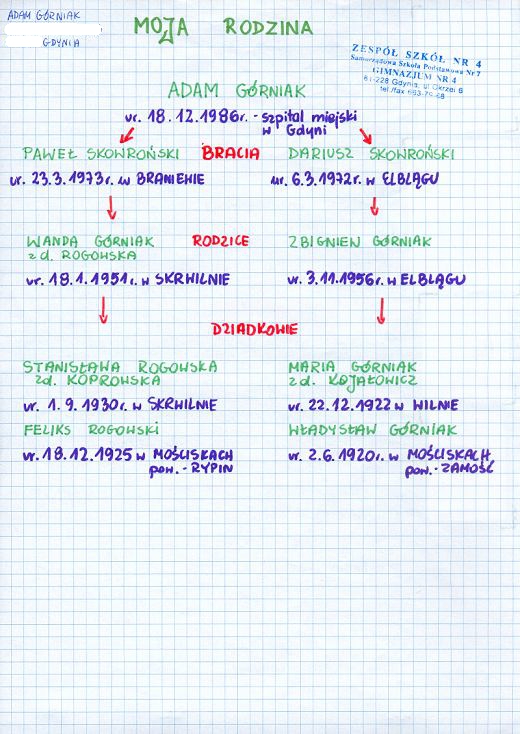 ADAM GÓRNIAK
GDYNIA
MOJA RODZINA
ZESPÓŁ SZKÓŁ NR 4
Samorządowa Szkoła Podstawowa Nr 7
GIMNAZJUM NR 4
81-228 Gdynia, ul. Okrzei 6
tel./fax 663-79-68
ADAM GÓRNIAK
ur. 18.12.1986r. - szpital miejski
w Gdyni
PAWEŁ SKOWROŃSKI BRACIA DARIUSZ SKOWROŃSKI
ur. 23.3.1973r. w BRANIEWIE ur. 6.3.1972r. w ELBLĄGU
WANDA GÓRNIAK RODZICE ZBIGNIEW GÓRNIAK
z d. ROGOWSKA
ur. 18.1.1951r. w SKRWILNIE ur. 3.11.1956r. w ELBLĄGU
DZIADKOWIE
STANISŁAWA ROGOWSKA MARIA GÓRNIAK
zd. KOPROWSKA z d. KOJAŁOWICZ
ur. 1.9.1930r. w SKRWILNIE ur. 22.12.1922 w WILNIE
FELIKS ROGOWSKI WŁADYSŁAW GÓRNIAK
ur. 18.12.1925 w MOŚCISKACH ur. 2.6.1920r. w MOŚCISKACH
pow. - RYPIN pow. - ZAMOŚĆ